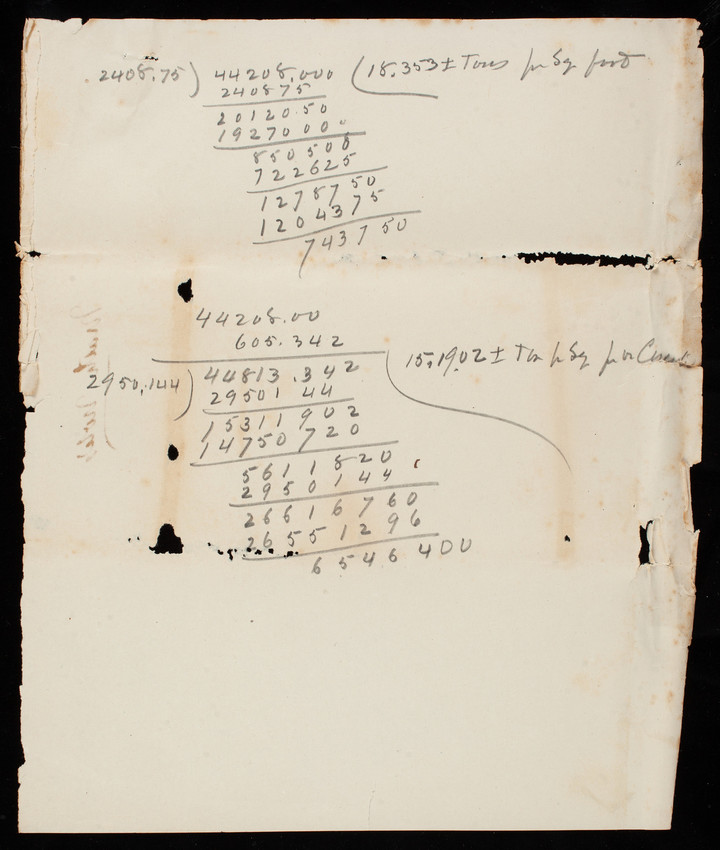 2408.75 ) 44208.000 ( 18.353 ± Tons per Sq foot
240875
20120.50
1927000
850500
722625
1278750
1204375
743750
44208.00
605.342
2950.144 ) 44813.342 15.1902 ± Ton p Sq f on
29501 44
15311 902
14750 720
5611820
2950144
26616760
26551296
6546400